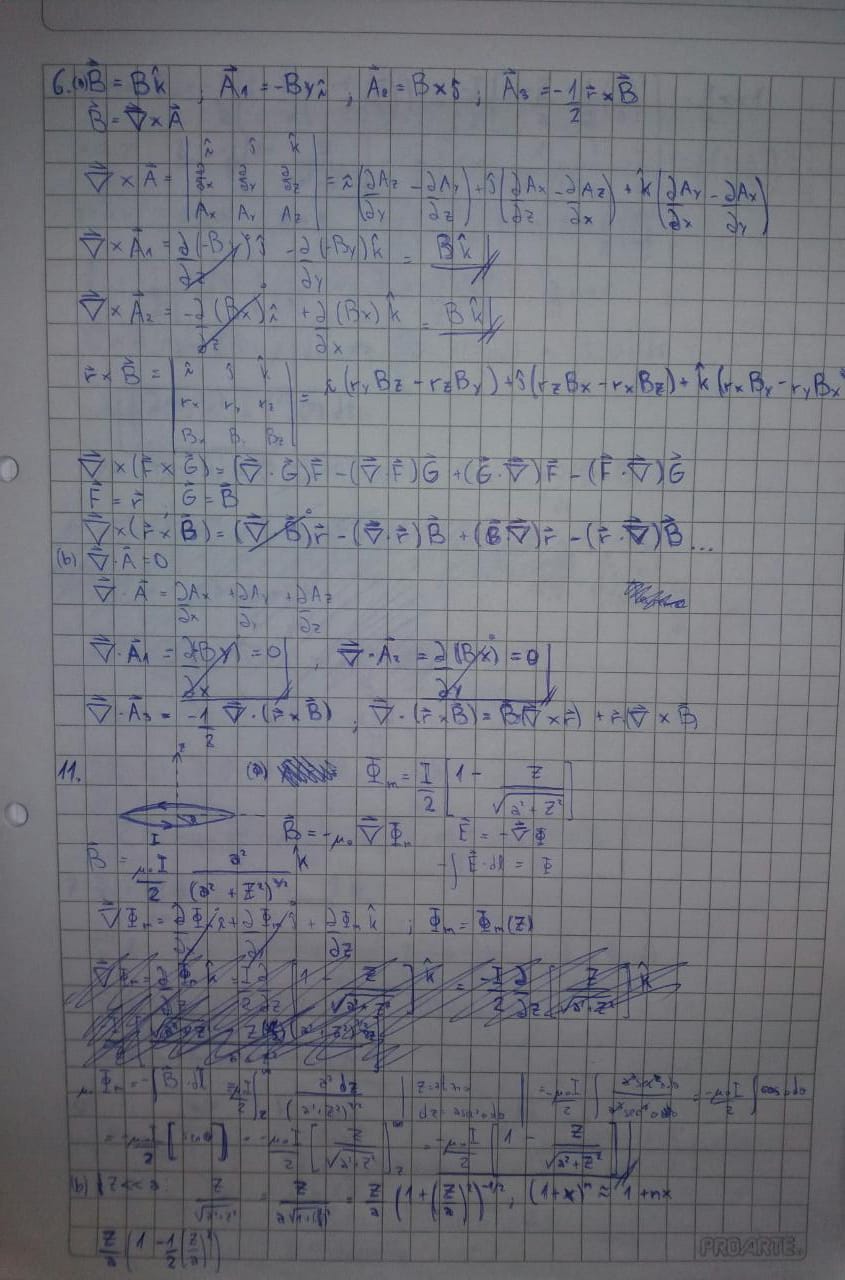 6. (a) B⃗ = B k̂ , A⃗₁ = -By î ; A⃗₂ = Bx ĵ ; A⃗₃ = -1/2 r⃗ × B⃗
B⃗ = ∇⃗ × A⃗
∇⃗ × A⃗ = | î ĵ k̂ ; ∂/∂x ∂/∂y ∂/∂z ; Ax Ay Az | = î (∂Az/∂y - ∂Ay/∂z) + ĵ (∂Ax/∂z - ∂Az/∂x) + k̂ (∂Ay/∂x - ∂Ax/∂y)
∇⃗ × A⃗₁ = ∂(-By)/∂z ĵ - ∂/∂y (-By) k̂ = B k̂
∇⃗ × A⃗₂ = -∂/∂z (Bx) î + ∂/∂x (Bx) k̂ = B k̂
r⃗ × B⃗ = | î ĵ k̂ ; rx ry rz ; Bx By Bz | = î (ry Bz - rz By) + ĵ (rz Bx - rx Bz) + k̂ (rx By - ry Bx
∇⃗ × (F⃗ × G⃗) = (∇⃗ · G⃗) F⃗ - (∇⃗ · F⃗) G⃗ + (G⃗ · ∇⃗) F⃗ - (F⃗ · ∇⃗) G⃗
F⃗ = r⃗ , G⃗ = B⃗
∇⃗ × (r⃗ × B⃗) = (∇⃗ · B⃗) r⃗ - (∇⃗ · r⃗) B⃗ + (B⃗ ∇⃗) r⃗ - (r⃗ · ∇⃗) B⃗ ...
(b) ∇⃗ · A⃗ = 0
∇⃗ · A⃗ = ∂Ax/∂x + ∂Ay/∂y + ∂Az/∂z
∇⃗ · A⃗₁ = ∂(-By)/∂x = 0 , ∇⃗ · A⃗₂ = ∂/∂y (Bx) = 0
∇⃗ · A⃗₃ = -1/2 ∇⃗ · (r⃗ × B⃗) ; ∇⃗ · (r⃗ × B⃗) = B⃗(∇⃗ × r⃗) + r⃗(∇⃗ × B⃗)
11. z (a) Φm = I/2 [1 - z/√(a² + z²)]
a
I
B⃗ = -μ₀ ∇⃗ Φm E⃗ = -∇⃗ Φ
B⃗ = μ₀I/2 a²/(a² + z²)^3/2 k̂ -∫ E⃗ · dl = Φ
∇⃗ Φm = ∂Φm/∂x î + ∂Φm/∂y ĵ + ∂Φm/∂z k̂ ; Φm = Φm(z)
∇⃗ Φm = ∂Φm/∂z k̂ = I/2 ∂/∂z [1 - z/√(a² + z²)] k̂ = -I/2 ∂/∂z [z/√(a² + z²)] k̂
μ₀ Φm = -∫ B⃗ · dl = μ₀I/2 ∫ a² dz/(a² + z²)^3/2 = -μ₀I/2 ∫ = -μ₀I/2 ∫ cosθ dθ
= -μ₀I/2 [senθ] = -μ₀I/2 [z/√(a² + z²)] = -μ₀I/2 [1 - z/√(a² + z²)]
(b) z << a z/√(a² + z²) = z/a√(1 + ( )²) = z/a (1 + (z/a)²)^-1/2 ; (1 + x)ⁿ ≈ 1 + nx
z/a (1 - 1/2 (z/a)²)
PROARTE.